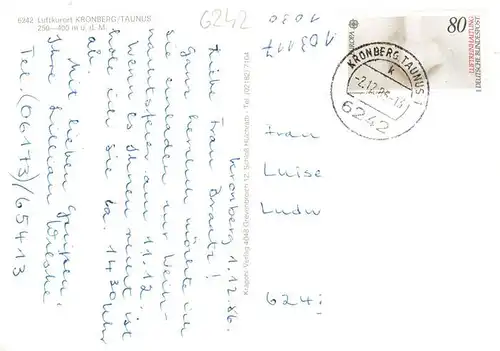 6242 Luftkurort KRONBERG/TAUNUS
250–400 m ü. d. M.
6242
Kronberg 1.12.86
Liebe Frau
Ganz herzlich möchte ich
Sie einladen zur Weih-
nachtsfeier am 11.12.
Wenn es Ihnen recht ist
hole ich Sie ca. 14.30 Uhr
ab.
Mit lieben Grüßen,
Ihre Lilian
Tel. (06173)/65413
Krapohl-Verlag 4048 Grevenbroich 12, Schloß Hülchrath · Tel. (02182) 7104
1030
103117
EUROPA
80
LUFTREINHALTUNG
DEUTSCHE BUNDESPOST
KRONBERG, TAUNUS 1
k
-2.12.86-18
6242
Frau
Luise
Ludw
624